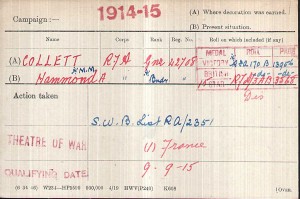 1914-15
Campaign :— (A) Where decoration was earned.
(B) Present situation.
Name Corps Rank Reg. No. Roll on which included (if any)
MEDAL ROLL PAGE
(A) COLLETT R.F.A Gnr 42708 VICTORY RA/170 B 13956
(B) Hammond A " Bmdr " BRITISH -do- -do-
15
Action taken
S.W.B. List RA/2351
THEATRE OF WAR (1) France
QUALIFYING DATE 9-9-15
K608 [Over.